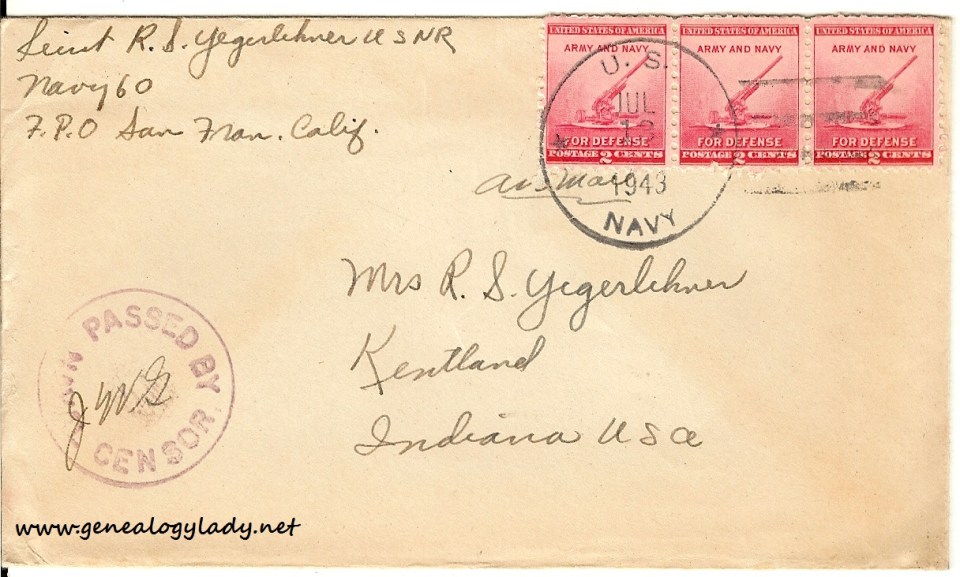 Lieut R. S. Yegerlehner USNR
Navy 60
F.P.O San Fran. Calif.
UNITED STATES OF AMERICA UNITED STATES OF AMERICA UNITED STATES OF AMERICA
ARMY AND NAVY ARMY AND NAVY ARMY AND NAVY
FOR DEFENSE FOR DEFENSE FOR DEFENSE
POSTAGE 2 CENTS POSTAGE 2 CENTS POSTAGE 2 CENTS
U. S.
JUL
1943
NAVY
Air Mail
Mrs R. S. Yegerlehner
Kentland
Indiana USA
PASSED BY
NAVAL
CENSOR
JWG
www.genealogylady.net